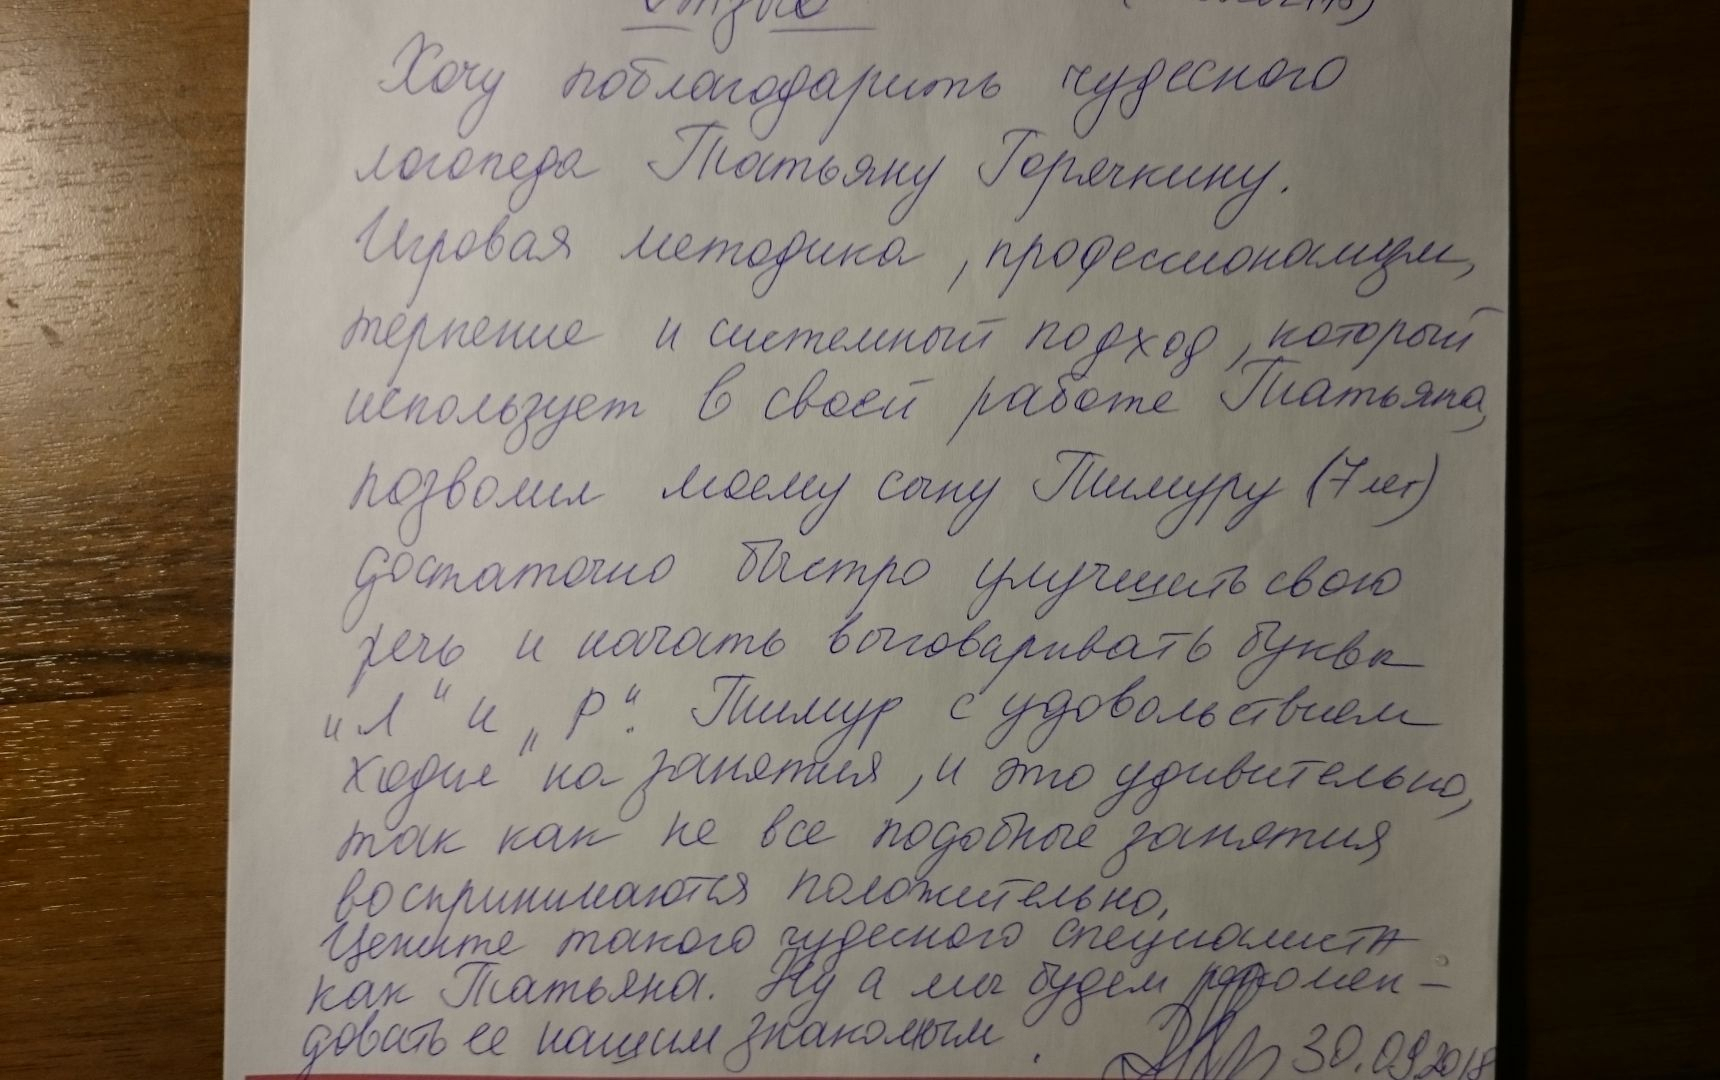 Отзыв
Хочу поблагодарить чудесного
логопеда Татьяну Горячкину.
Игровая методика, профессионализм,
терпение и системный подход, который
использует в своей работе Татьяна,
позволил моему сыну Тимуру (7 лет)
достаточно быстро улучшить свою
речь и начать выговаривать буквы
"Л" и "Р". Тимур с удовольствием
ходил на занятия, и это удивительно,
так как не все подобные занятия
воспринимаются положительно.
Цените такого чудесного специалиста
как Татьяна. Ну а мы будем рекомен-
довать ее нашим знакомым.
30.09.2018